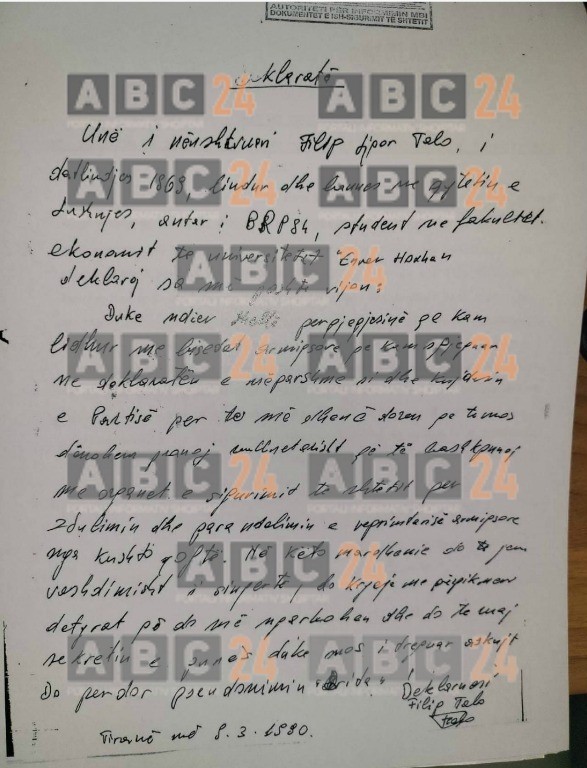 AUTORITETI PËR INFORMIMIN MBI
DOKUMENTET E ISH-SIGURIMIT TË SHTETIT
Deklaratë
Unë i nënshkruari Filip Talo, i
datlindjes 1969, lindur dhe banues ne qytetin e
Lushnjes, antar i BRPSH, student ne fakultet.
ekonomik te universitetit "Enver Hoxha"
deklaroj sa me poshtë vijon:
Duke ndier thellë pergjegjesinë qe kam
lidhur me bisedat armiqsore qe kam shpjeguar
ne deklaratën e mëparshme si dhe kujdesin
e Partisë per te më dhenë doren qe te mos
dënohem pranoj vullnetarisht që të bashkpunoj
me organet e sigurimit te shtetit per
zbulimin dhe parandalimin e veprimtarisë armiqsore
nga kushdo qoftë. Në këto mardhenie do te jem
vazhdimisht i singertë, do kryej me përpikmëri
detyrat që do më ngarkohen dhe do te ruaj
sekretin e punës duke mos i treguar askujt
Do perdor pseudonimin "Drida"
Deklaruesi
Filip Talo
Talo
Tiranë më 8.3.1990.
ABC 24
PORTALI INFORMATIV SHQIPTAR